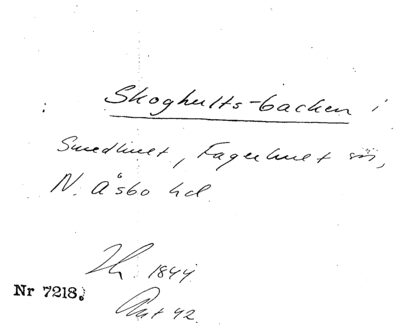 Skoghults-backen i
Smedhult, Fagerhult sn,
N. Åsbo hd
1844
Nr 7218.
42.